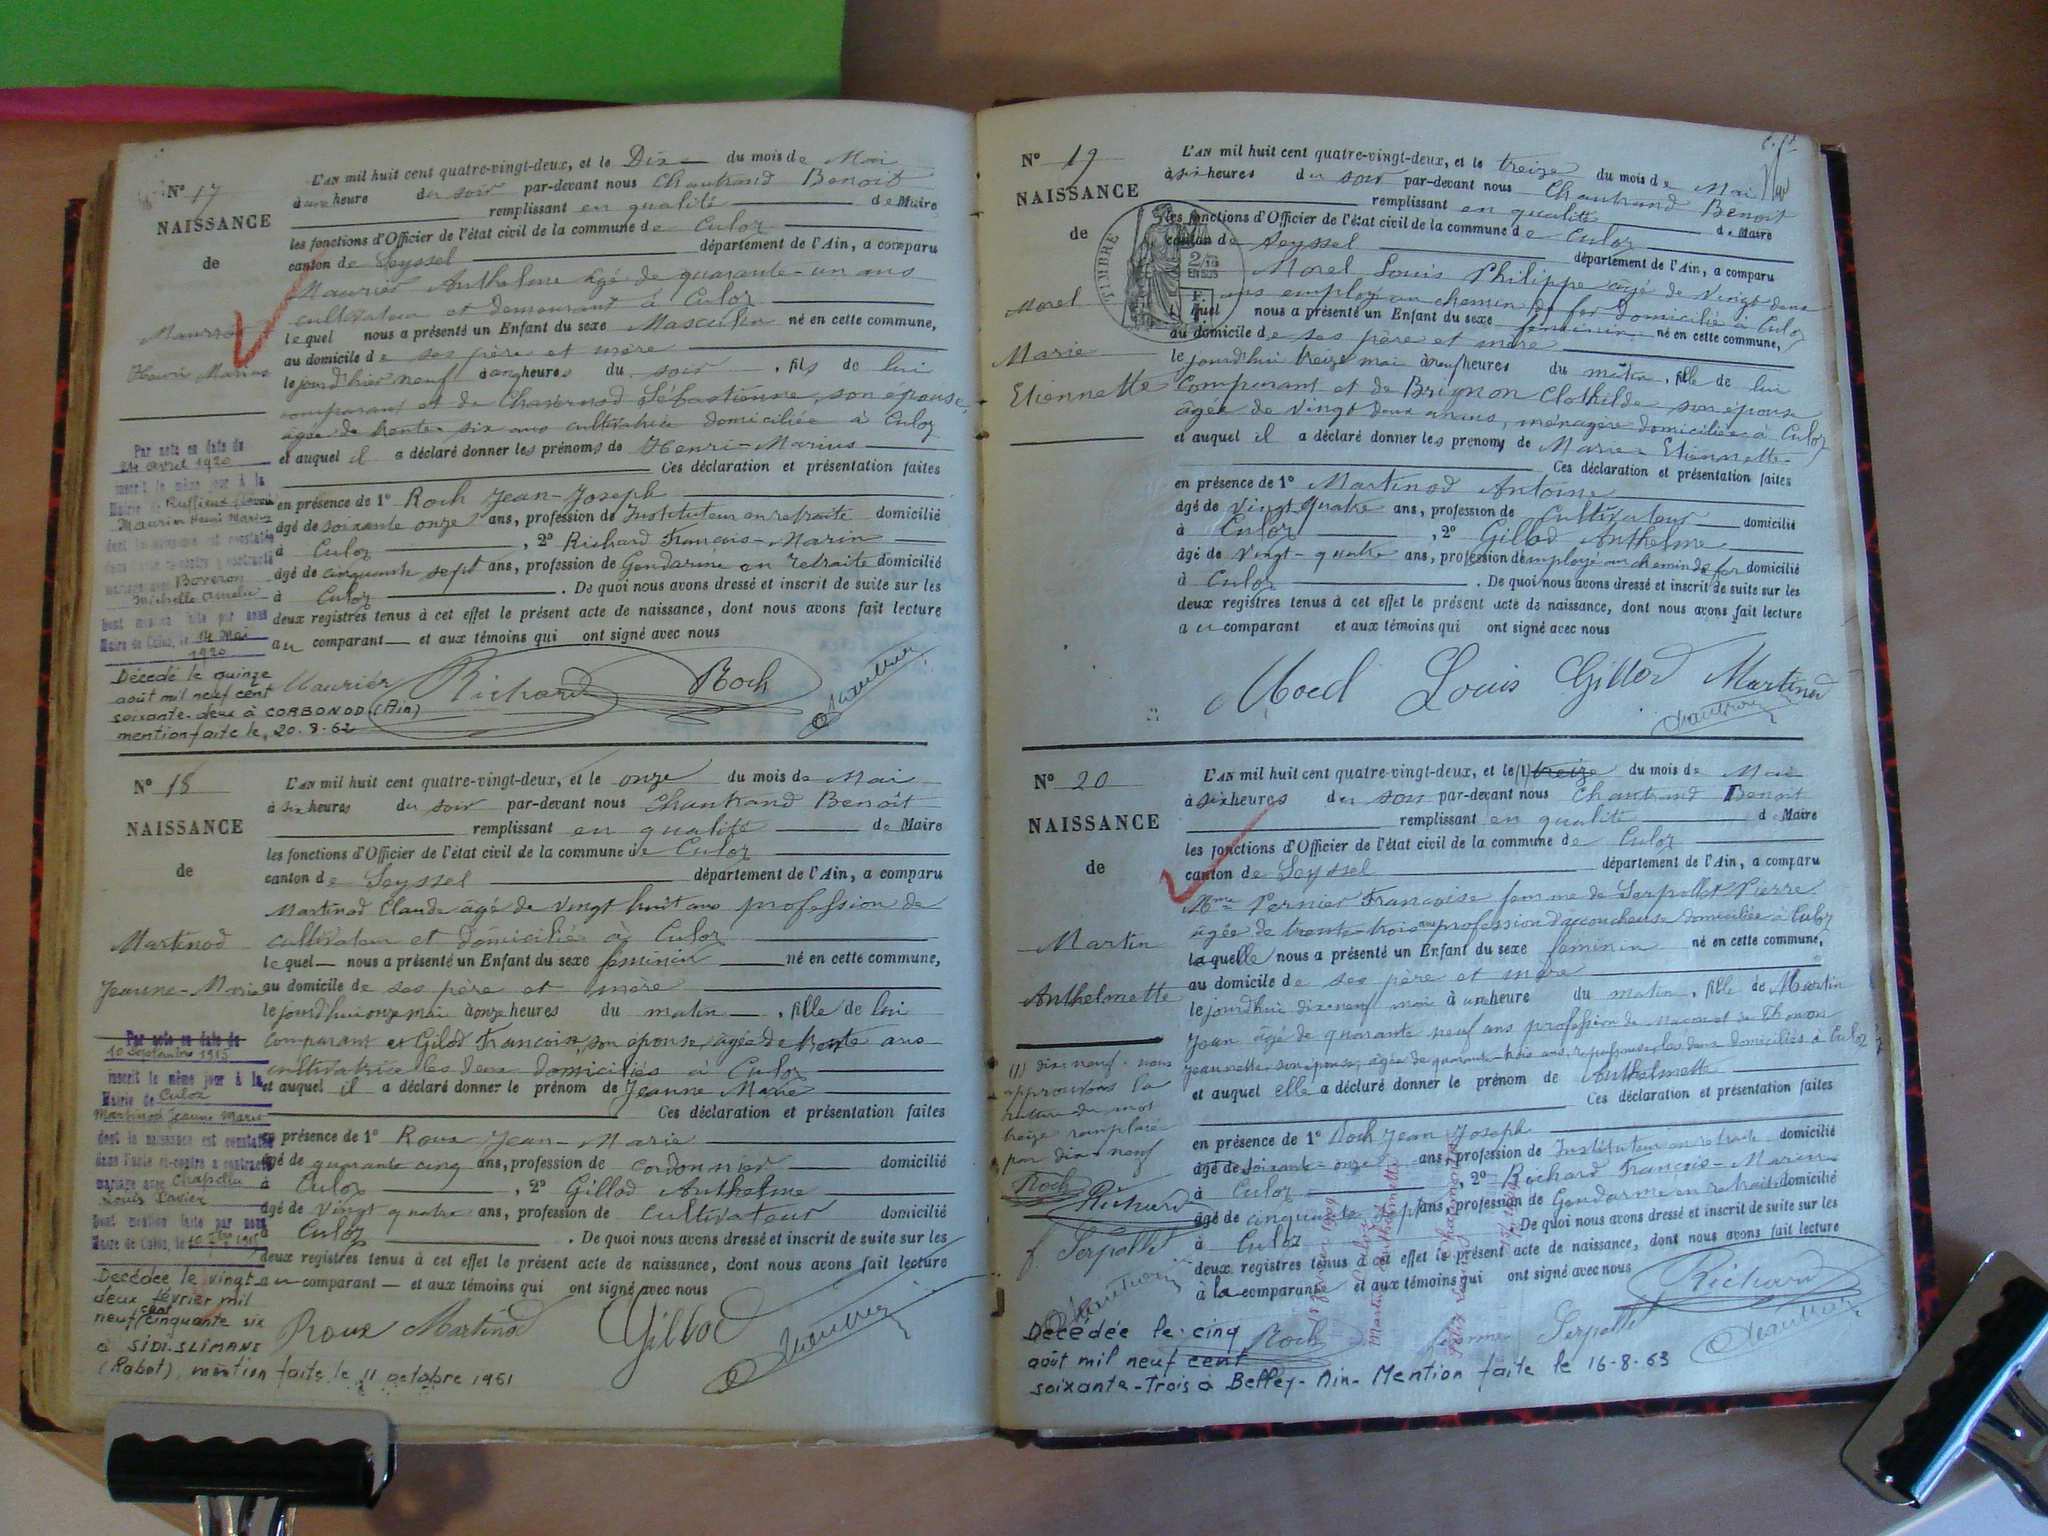 N° 17
NAISSANCE
de
Maurier
Henri Marius
L'AN mil huit cent quatre-vingt-deux, et le Dix du mois de Mai
à une heure du soir par-devant nous Chantrand Benoit
remplissant en qualité de Maire
les fonctions d'Officier de l'état civil de la commune de Culoz
canton de Seyssel département de l'Ain, a comparu
Maurier Anthelme âgé de quarante-un ans
cultivateur et demeurant à Culoz
lequel nous a présenté un Enfant du sexe Masculin né en cette commune,
au domicile de ses père et mère
le jourd'hier neuf à onze heures du soir, fils de lui
comparant et de Charvenod Sébastienne, son épouse,
âgée de trente-six ans cultivatrice domiciliée à Culoz
et auquel il a déclaré donner les prénoms de Henri-Marius
Ces déclaration et présentation faites
en présence de 1° Roch Jean-Joseph
âgé de soixante onze ans, profession de Instituteur en retraite domicilié
à Culoz, 2° Richard François-Marin
âgé de cinquante sept ans, profession de Gendarme en retraite domicilié
à Culoz. De quoi nous avons dressé et inscrit de suite sur les
deux registres tenus à cet effet le présent acte de naissance, dont nous avons fait lecture
au comparant et aux témoins qui ont signé avec nous
Maurier Richard Roch Chantrand
Par note en date du
24 Avril 1920
inscrit le même jour à la
Mairie de Ruffieux
Maurier Henri Marius
dont la naissance est constatée
dans l'acte ci-contre a contracté
mariage avec Borreron
Michelle Amélie
Dont mention faite par nous
Maire de Culoz, le 14 Mai
1920
Décédé le quinze
août mil neuf cent
soixante-deux à CORBONOD (Ain)
mention faite le, 20.8.62
N° 18
NAISSANCE
de
Martinod
Jeanne-Marie
L'AN mil huit cent quatre-vingt-deux, et le onze du mois de Mai
à six heures du soir par-devant nous Chantrand Benoît
remplissant en qualité de Maire
les fonctions d'Officier de l'état civil de la commune de Culoz
canton de Seyssel département de l'Ain, a comparu
Martinod Claude âgé de vingt huit ans profession de
cultivateur et domicilié à Culoz
lequel nous a présenté un Enfant du sexe féminin né en cette commune,
au domicile de ses père et mère
le jourd'hui onze mai à onze heures du matin, fille de lui
comparant et Gilod Francoise, son épouse, âgée de trente ans
cultivatrice les deux domiciliés à Culoz
et auquel il a déclaré donner le prénom de Jeanne Marie
Ces déclaration et présentation faites
en présence de 1° Roux Jean-Marie
âgé de quarante cinq ans, profession de cordonnier domicilié
à Culoz, 2° Gillod Anthelme
âgé de vingt quatre ans, profession de cultivateur domicilié
à Culoz. De quoi nous avons dressé et inscrit de suite sur les
deux registres tenus à cet effet le présent acte de naissance, dont nous avons fait lecture
au comparant et aux témoins qui ont signé avec nous
Roux Martinod Gillod Chantrand
Par note en date du
10 Septembre 1915
inscrit le même jour à la
Mairie de Culoz
Martinod Jeanne Marie
dont la naissance est constatée
dans l'acte ci-contre a contracté
mariage avec Chapelu
Louis Xavier
Dont mention faite par nous
Maire de Culoz, le 10 7bre 1915
Décédée le vingt
deux février mil
neuf cent cinquante six
à SIDI.SLIMANE
(Rabat), mention faite le 11 octobre 1961
N° 19
NAISSANCE
de
Morel
Marie
Etiennette
TIMBRE
L'AN mil huit cent quatre-vingt-deux, et le treize du mois de Mai
à six heures du soir par-devant nous Chantrand Benoit
remplissant en qualité de Maire
les fonctions d'Officier de l'état civil de la commune de Culoz
canton de Seyssel département de l'Ain, a comparu
Morel Louis Philippe âgé de vingt deux
ans employé au chemin de fer domicilié à Culoz
lequel nous a présenté un Enfant du sexe féminin né en cette commune,
au domicile de ses père et mère
le jourd'hui treize mai à neuf heures du matin, fille de lui
comparant et de Brignon Clothilde son épouse
âgée de vingt deux ans, ménagère domiciliée à Culoz
et auquel il a déclaré donner les prenoms de Marie Etiennette
Ces déclaration et présentation faites
en présence de 1° Martinod Antoine
âgé de vingt quatre ans, profession de cultivateur domicilié
à Culoz, 2° Gillod Anthelme
âgé de vingt-quatre ans, profession de employé au chemin de fer domicilié
à Culoz. De quoi nous avons dressé et inscrit de suite sur les
deux registres tenus à cet effet le présent acte de naissance, dont nous avons fait lecture
au comparant et aux témoins qui ont signé avec nous
Morel Louis Gillod Martinod
Chantrand
N° 20
NAISSANCE
de
Martin
Anthelmette
L'AN mil huit cent quatre-vingt-deux, et le (1) treize du mois de Mai
à six heures du soir par-devant nous Chantrand Benoit
remplissant en qualité de Maire
les fonctions d'Officier de l'état civil de la commune de Culoz
canton de Seyssel département de l'Ain, a comparu
Mme Vernier Francoise femme de Serpollet Pierre
âgée de trente-trois ans profession d'accoucheuse domiciliée à Culoz
laquelle nous a présenté un Enfant du sexe féminin né en cette commune,
au domicile de ses père et mère
le jourd'hui dix-neuf mai à une heure du matin, fille de Martin
Jean âgé de quarante neuf ans profession de macon et de Thonon
Jeannette son épouse, âgée de quarante-trois ans, les deux domiciliés à Culoz
et auquel elle a déclaré donner le prénom de Anthelmette
Ces déclaration et présentation faites
en présence de 1° Roch Jean Joseph
âgé de soixante-onze ans, profession de Instituteur en retraite domicilié
à Culoz, 2° Richard François-Marin
âgé de cinquante sept ans, profession de Gendarme en retraite domicilié
à Culoz. De quoi nous avons dressé et inscrit de suite sur les
deux registres tenus à cet effet le présent acte de naissance, dont nous avons fait lecture
à la comparante et aux témoins qui ont signé avec nous
Richard
Roch femme Serpollet Chantrand
(1) dix-neuf. nous
approuvons la
rature du mot
treize remplacé
par dix-neuf
Roch
Richard
f. Serpollet
Chantrand
Décédée le cinq
août mil neuf cent
soixante-trois à Belley-Ain- Mention faite le 16-8-63